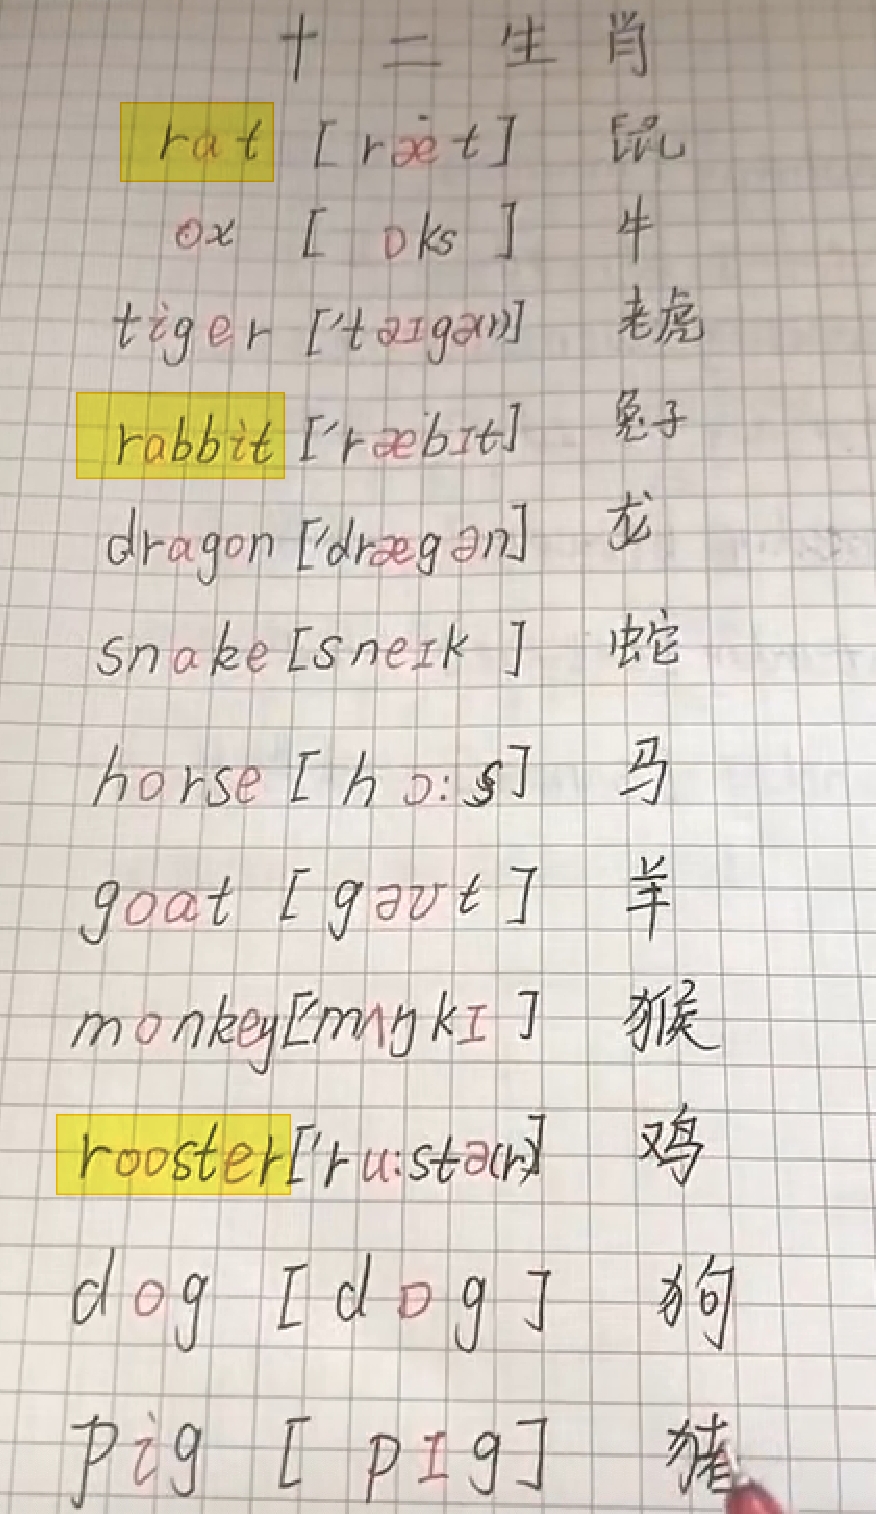 十二生肖
rat [ræt] 鼠
ox [ɒks] 牛
tiger ['taɪgə(r)] 老虎
rabbit ['ræbɪt] 兔子
dragon ['drægən] 龙
snake [sneɪk] 蛇
horse [hɔ:s] 马
goat [gəʊt] 羊
monkey ['mʌŋkɪ] 猴
rooster ['ru:stə(r)] 鸡
dog [dɒg] 狗
pig [pɪg] 猪